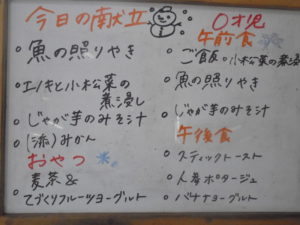 今日の献立
・魚の照りやき
・エノキと小松菜の
煮浸し
・じゃが芋のみそ汁
・(流)みかん
おやつ
麦茶&
てづくりフルーツヨーグルト
0才児
午前食
・ご飯・小松菜の煮浸し
・魚の照りやき
・じゃが芋のみそ汁
午後食
・スティックトースト
・人参ポタージュ
・バナナヨーグルト